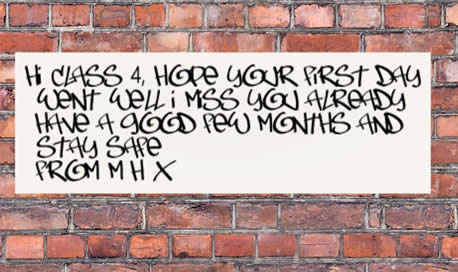 Hi CLASS 4, HOPE YOUR FIRST DAY
WENT WELL i MISS YOU ALREADY
HAVE A GOOD FEW MONTHS AND
STAY SAFE
FROM M H X